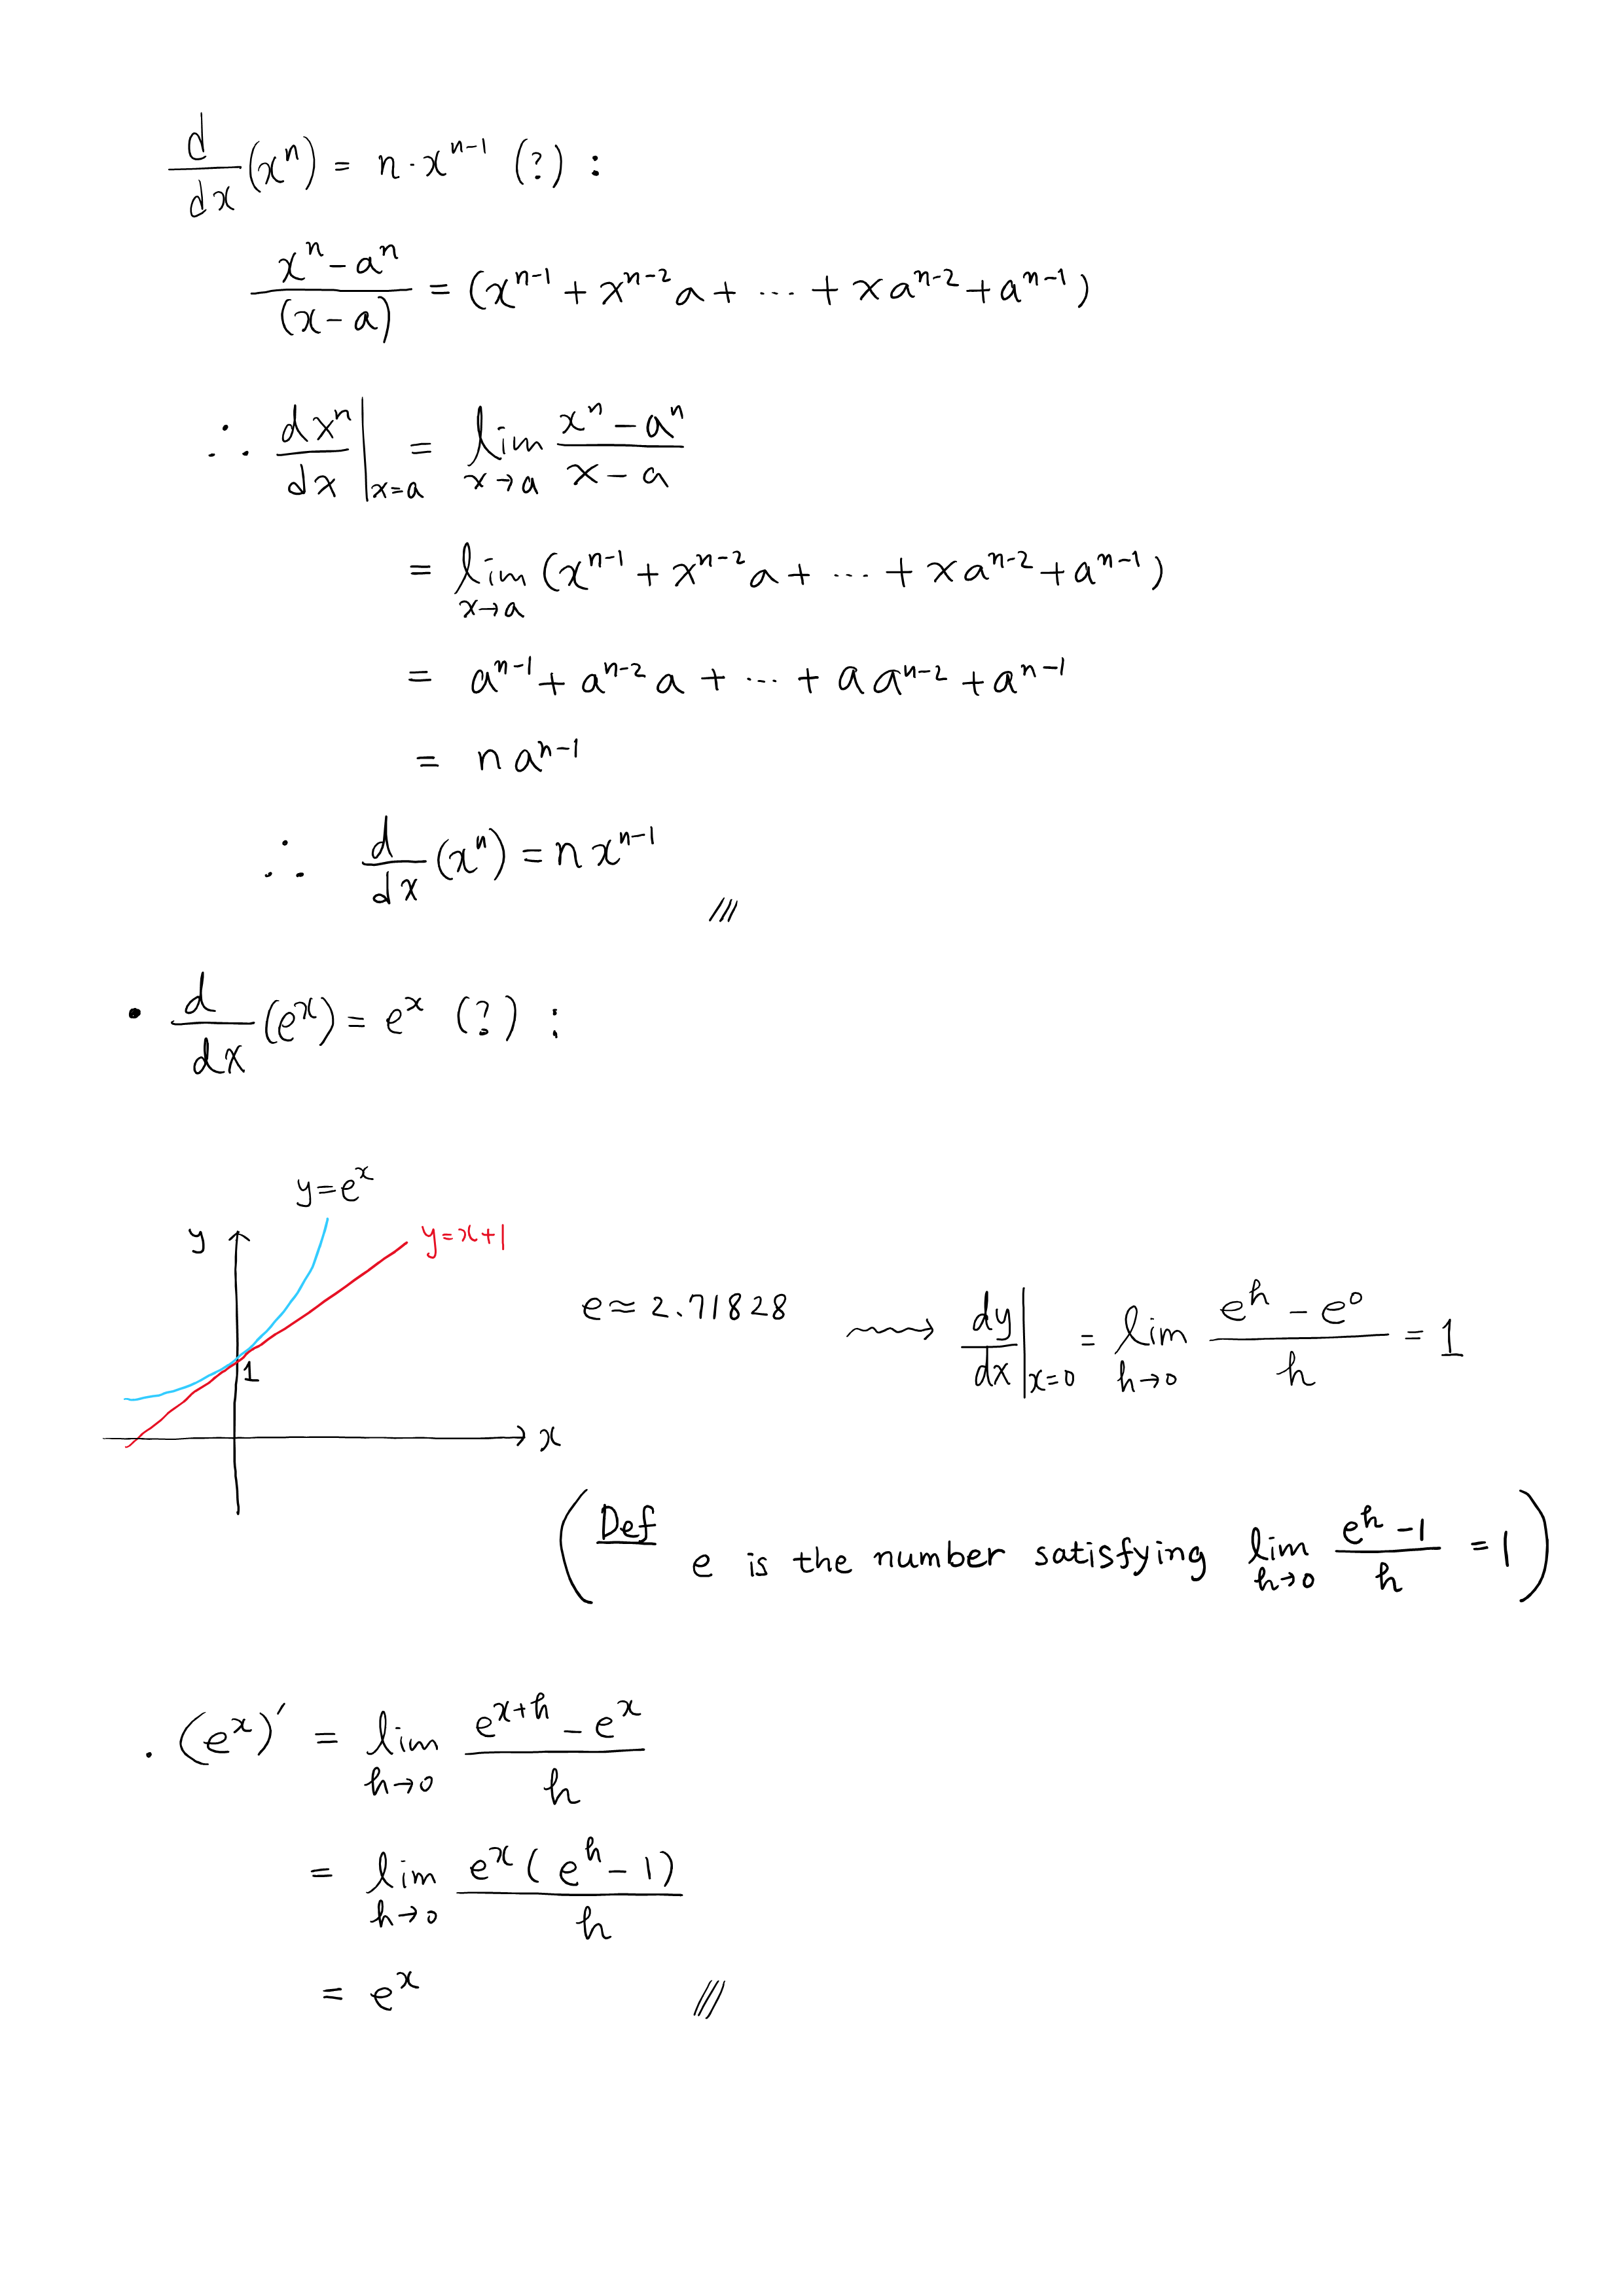 d/dx (xⁿ) = n·xⁿ⁻¹ (?) :
(xⁿ − aⁿ)/(x − a) = (xⁿ⁻¹ + xⁿ⁻²a + ⋯ + xaⁿ⁻² + aⁿ⁻¹)
∴ dxⁿ/dx |ₓ₌ₐ = lim_{x→a} (xⁿ − aⁿ)/(x − a)
= lim_{x→a} (xⁿ⁻¹ + xⁿ⁻²a + ⋯ + xaⁿ⁻² + aⁿ⁻¹)
= aⁿ⁻¹ + aⁿ⁻²a + ⋯ + aaⁿ⁻² + aⁿ⁻¹
= naⁿ⁻¹
∴ d/dx (xⁿ) = nxⁿ⁻¹
///
• d/dx (eˣ) = eˣ (?) :
y = eˣ
y
y = x+1
1
x
e ≈ 2.71828 ⇝ dy/dx |ₓ₌₀ = lim_{h→0} (eʰ − e⁰)/h = 1
(Def e is the number satisfying lim_{h→0} (eʰ − 1)/h = 1)
· (eˣ)′ = lim_{h→0} (eˣ⁺ʰ − eˣ)/h
= lim_{h→0} eˣ(eʰ − 1)/h
= eˣ ///